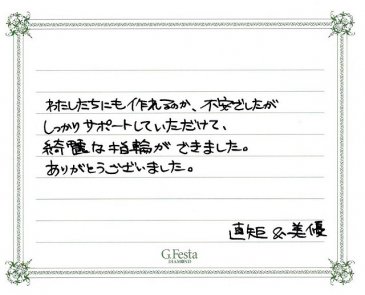 わたしたちにも作れるのか、不安でしたが
しっかりサポートしていただけて、
綺麗な指輪ができました。
ありがとうございました。
直矩 & 美優
G.Festa
DIAMOND